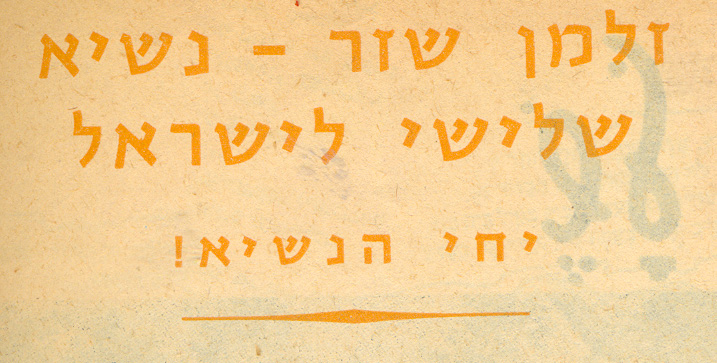 זלמן שזר – נשיא
שלישי לישראל
יחי הנשיא!